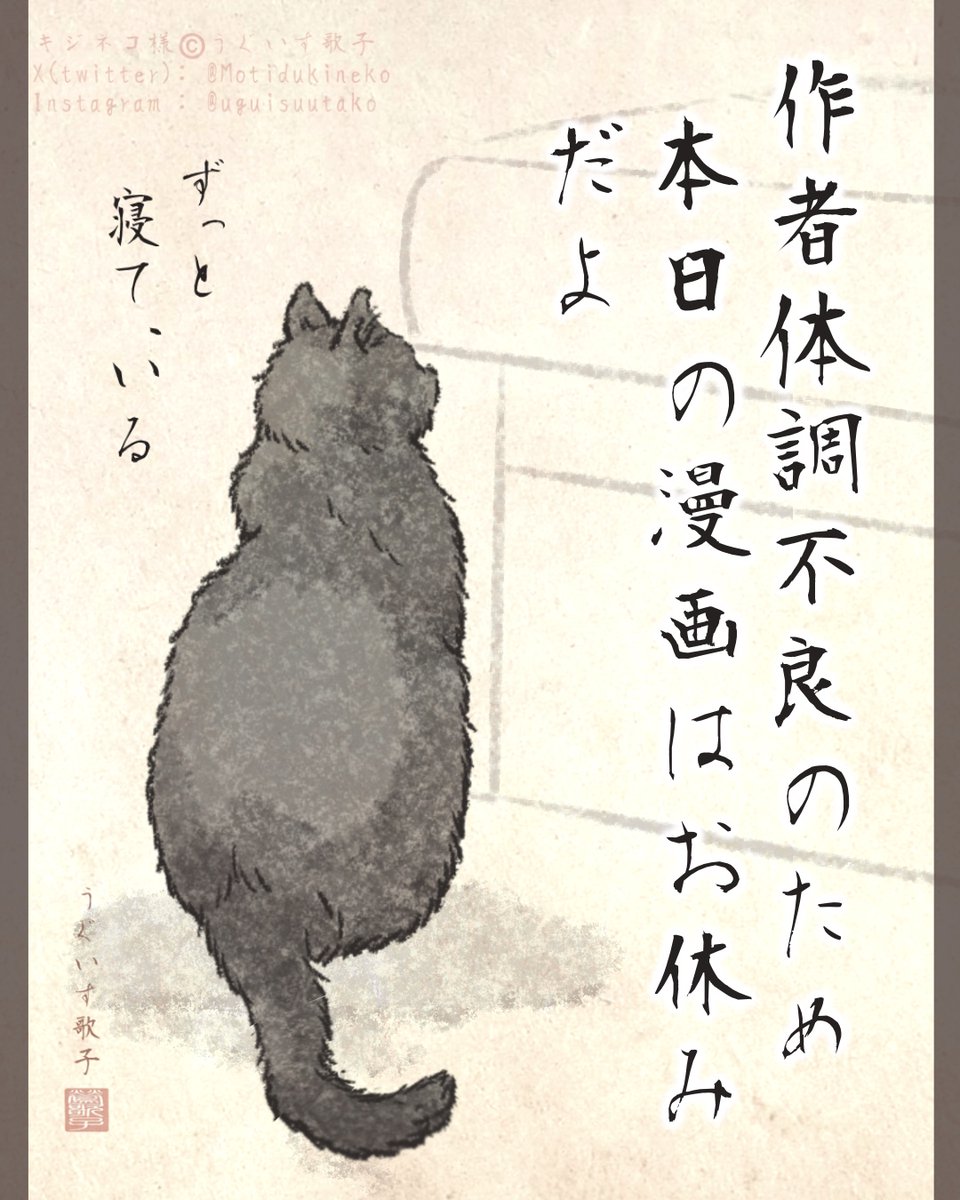 キジネコ様©うぐいす歌子
X(twitter): @Motidukineko
Instagram : @uguisuutako
作者体調不良のため
本日の漫画はお休み
だよ
ずっと
寝ている
うぐいす歌子